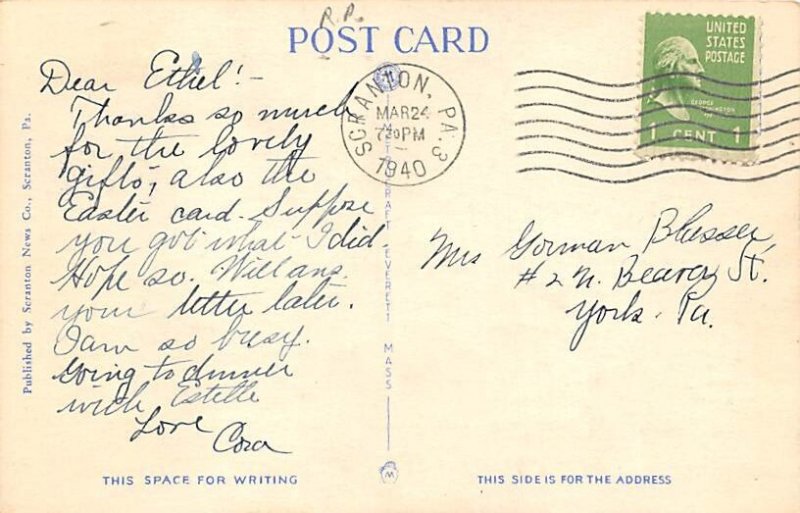 R.P.
POST CARD
Dear Ethel!-
Thanks so much
for the lovely
gifts, also the
Easter card. Suppose
you got what I did.
Hope so. Will ans.
your letter later.
I am so busy.
Going to dinner
with Estelle
Love
Cora
SCRANTON, PA. 3
MAR 24
7 PM
1940
UNITED
STATES
POSTAGE
GEORGE
WASHINGTON
1 CENT 1
Mrs Gorman
# 2 N. Beaver St.
York. Pa.
Published by Scranton News Co., Scranton, Pa.
EVERETT MASS
THIS SPACE FOR WRITING
THIS SIDE IS FOR THE ADDRESS